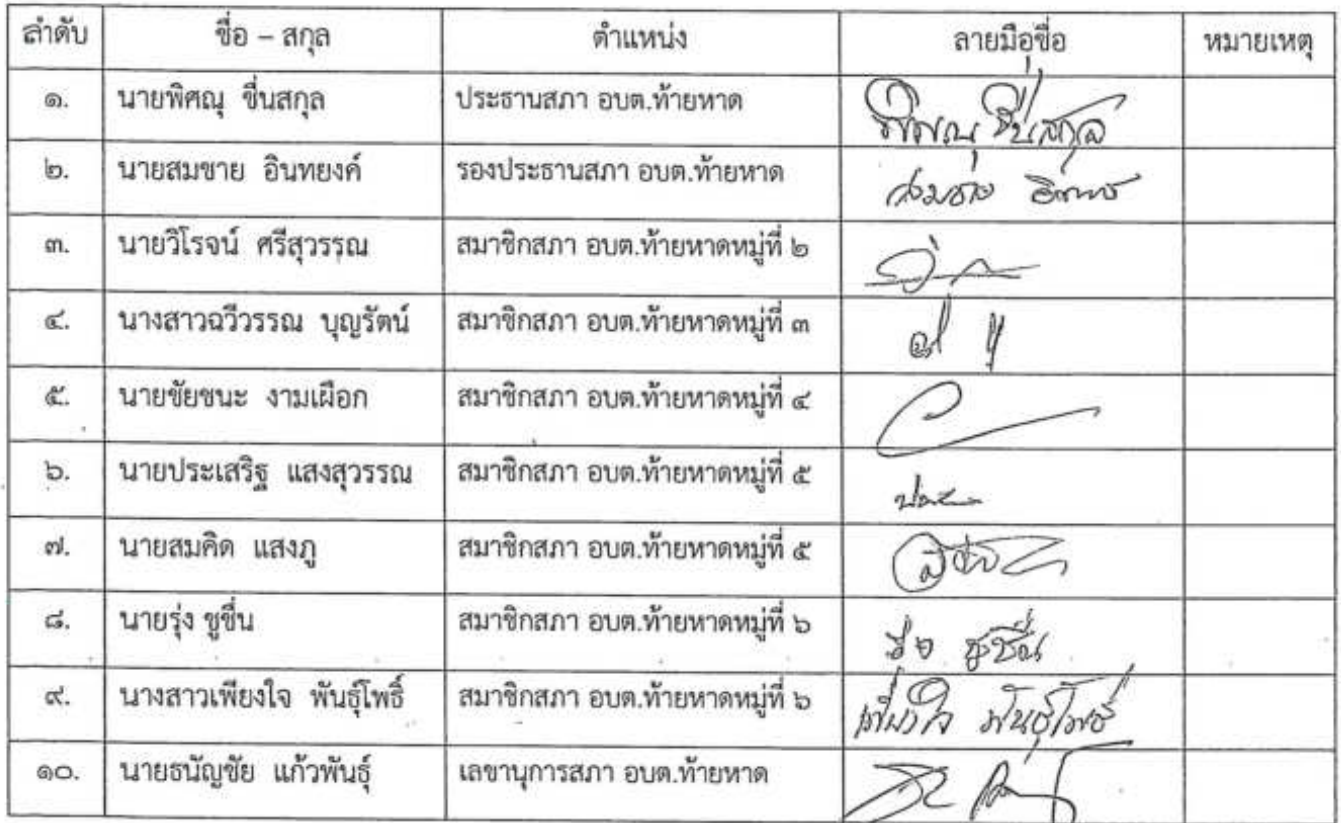 ลำดับ ชื่อ – สกุล ตำแหน่ง ลายมือชื่อ หมายเหตุ
๑. นายพิศณุ ชื่นสกุล ประธานสภา อบต.ท้ายหาด พิศณุ ชื่นสกุล
๒. นายสมชาย อินทยงค์ รองประธานสภา อบต.ท้ายหาด สมชาย
๓. นายวิโรจน์ ศรีสุวรรณ สมาชิกสภา อบต.ท้ายหาดหมู่ที่ ๒
๔. นางสาวฉวีวรรณ บุญรัตน์ สมาชิกสภา อบต.ท้ายหาดหมู่ที่ ๓
๕. นายชัยชนะ งามเผือก สมาชิกสภา อบต.ท้ายหาดหมู่ที่ ๔
๖. นายประเสริฐ แสงสุวรรณ สมาชิกสภา อบต.ท้ายหาดหมู่ที่ ๕
๗. นายสมคิด แสงภู สมาชิกสภา อบต.ท้ายหาดหมู่ที่ ๕
๘. นายรุ่ง ชูชื่น สมาชิกสภา อบต.ท้ายหาดหมู่ที่ ๖ ชูชื่น
๙. นางสาวเพียงใจ พันธุ์โพธิ์ สมาชิกสภา อบต.ท้ายหาดหมู่ที่ ๖ เพียงใจ พันธุ์โพธิ์
๑๐. นายธนัญชัย แก้วพันธุ์ เลขานุการสภา อบต.ท้ายหาด